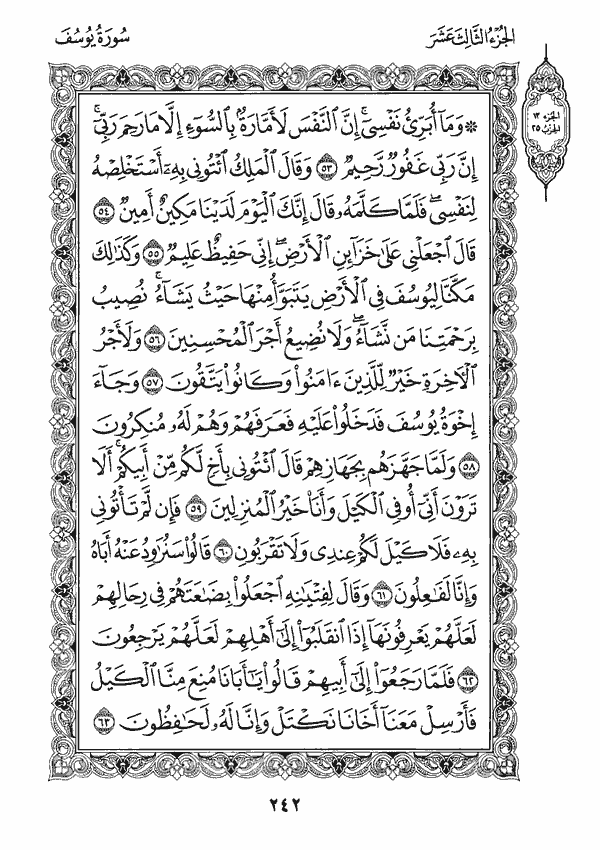 الجزء الثالث عشر
سورة يوسف
الجزء ١٣
الحزب ٢٥
۞ وَمَآ أُبَرِّئُ نَفْسِىٓ ۚ إِنَّ ٱلنَّفْسَ لَأَمَّارَةٌۢ بِٱلسُّوٓءِ إِلَّا مَا رَحِمَ رَبِّىٓ ۚ
إِنَّ رَبِّى غَفُورٌ رَّحِيمٌ ٥٣ وَقَالَ ٱلْمَلِكُ ٱئْتُونِى بِهِۦٓ أَسْتَخْلِصْهُ
لِنَفْسِى ۖ فَلَمَّا كَلَّمَهُۥ قَالَ إِنَّكَ ٱلْيَوْمَ لَدَيْنَا مَكِينٌ أَمِينٌ ٥٤
قَالَ ٱجْعَلْنِى عَلَىٰ خَزَآئِنِ ٱلْأَرْضِ ۖ إِنِّى حَفِيظٌ عَلِيمٌ ٥٥ وَكَذَٰلِكَ
مَكَّنَّا لِيُوسُفَ فِى ٱلْأَرْضِ يَتَبَوَّأُ مِنْهَا حَيْثُ يَشَآءُ ۚ نُصِيبُ
بِرَحْمَتِنَا مَن نَّشَآءُ ۖ وَلَا نُضِيعُ أَجْرَ ٱلْمُحْسِنِينَ ٥٦ وَلَأَجْرُ
ٱلْءَاخِرَةِ خَيْرٌ لِّلَّذِينَ ءَامَنُوا۟ وَكَانُوا۟ يَتَّقُونَ ٥٧ وَجَآءَ
إِخْوَةُ يُوسُفَ فَدَخَلُوا۟ عَلَيْهِ فَعَرَفَهُمْ وَهُمْ لَهُۥ مُنكِرُونَ
٥٨ وَلَمَّا جَهَّزَهُم بِجَهَازِهِمْ قَالَ ٱئْتُونِى بِأَخٍ لَّكُم مِّنْ أَبِيكُمْ ۚ أَلَا
تَرَوْنَ أَنِّىٓ أُوفِى ٱلْكَيْلَ وَأَنَا۠ خَيْرُ ٱلْمُنزِلِينَ ٥٩ فَإِن لَّمْ تَأْتُونِى
بِهِۦ فَلَا كَيْلَ لَكُمْ عِندِى وَلَا تَقْرَبُونِ ٦٠ قَالُوا۟ سَنُرَٰوِدُ عَنْهُ أَبَاهُ
وَإِنَّا لَفَٰعِلُونَ ٦١ وَقَالَ لِفِتْيَٰنِهِ ٱجْعَلُوا۟ بِضَٰعَتَهُمْ فِى رِحَالِهِمْ
لَعَلَّهُمْ يَعْرِفُونَهَآ إِذَا ٱنقَلَبُوٓا۟ إِلَىٰٓ أَهْلِهِمْ لَعَلَّهُمْ يَرْجِعُونَ
٦٢ فَلَمَّا رَجَعُوٓا۟ إِلَىٰٓ أَبِيهِمْ قَالُوا۟ يَٰٓأَبَانَا مُنِعَ مِنَّا ٱلْكَيْلُ
فَأَرْسِلْ مَعَنَآ أَخَانَا نَكْتَلْ وَإِنَّا لَهُۥ لَحَٰفِظُونَ ٦٣
٢٤٢